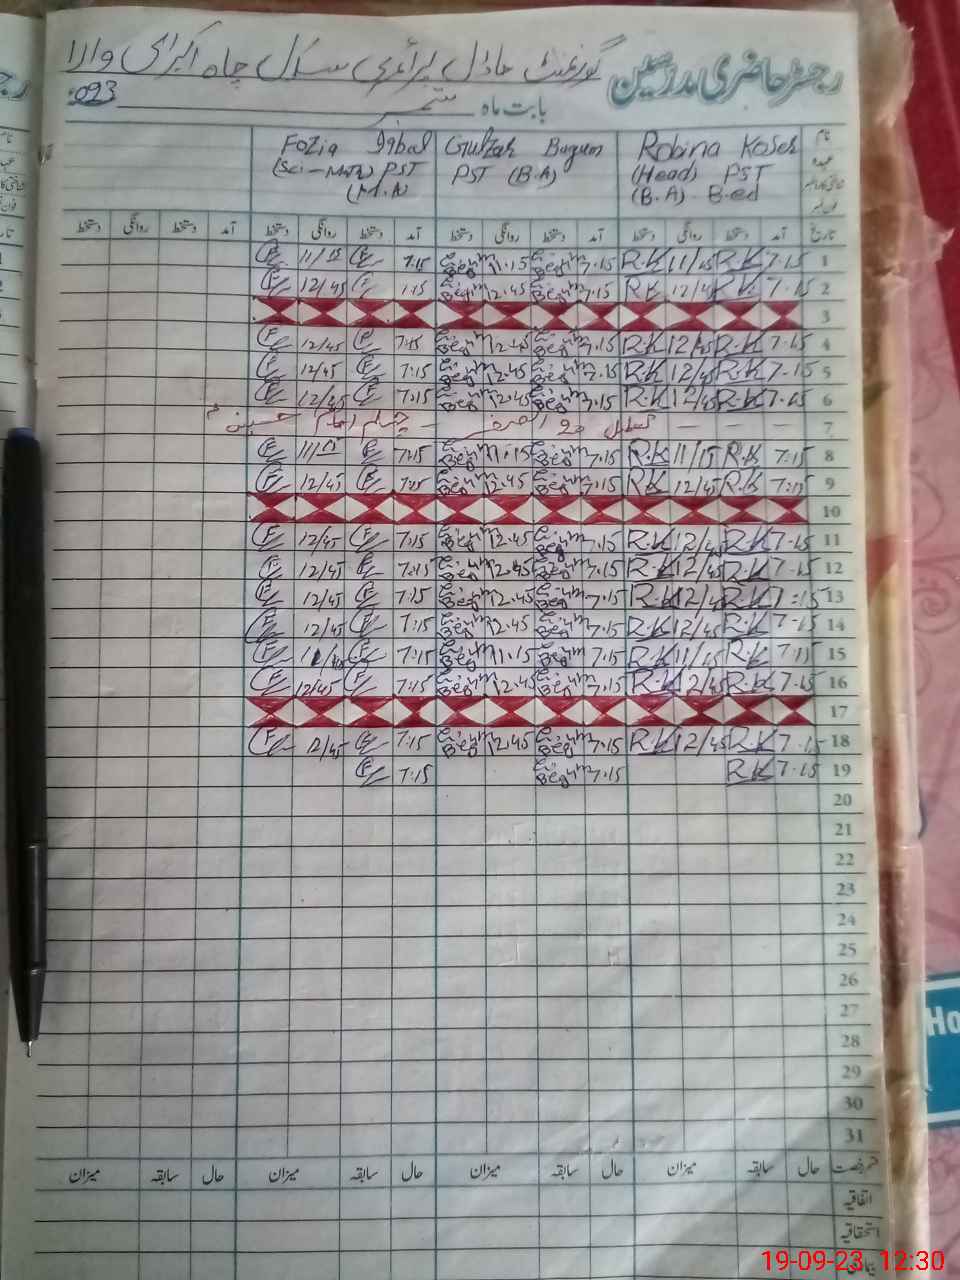 رجسٹر حاضری مدرسین گورنمنٹ ماڈل پرائمری سکول چاہ اکبرائی والا
بابت ماہ ستمبر 023
نام Robina Koser Gulzar Bugum Fozia Iqbal
عہدہ (Head) PST PST (B.A) (Sci-Math) PST
(B.A) B-ed (M.A)
تاریخ آمد دستخط روانگی دستخط آمد دستخط روانگی دستخط آمد دستخط روانگی دستخط آمد دستخط روانگی دستخط
1 7.15 R.K 11/15 R.K 7.15 Begum 11.15 Begum 7.15 11/15
2 7.15 R.K 12/45 R.K 7.15 Begum 12.45 Begum 7.15 12/45
3
4 7.15 R.K 12/45 R.K 7.15 Begum 12.45 Begum 7.15 12/45
5 7.15 R.K 12/45 R.K 7.15 Begum 12.45 Begum 7.15 12/45
6 7.15 R.K 12/45 R.K 7.15 Begum 12.45 Begum 7.15 12/45
7 تعطیل 20 الصفر چہلم امام حسین
8 7.15 R.K 11/15 R.K 7.15 Begum 11.15 Begum 7.15 11/15
9 7.15 R.K 12/45 R.K 7.15 Begum 12.45 Begum 7.15 12/45
10
11 7.15 R.K 12/45 R.K 7.15 Begum 12.45 Begum 7.15 12/45
12 7.15 R.K 12/45 R.K 7.15 Begum 12.45 Begum 7.15 12/45
13 7.15 R.K 12/45 R.K 7.15 Begum 12.45 Begum 7.15 12/45
14 7.15 R.K 12/45 R.K 7.15 Begum 12.45 Begum 7.15 12/45
15 7.15 R.K 11/15 R.K 7.15 Begum 11.15 Begum 7.15
16 7.15 R.K 12/45 R.K 7.15 Begum 12.45 Begum 7.15 12/45
17
18 7.15 R.K 12/45 R.K 7.15 Begum 12.45 Begum 7.15 12/45
19 7.15 R.K 7.15 Begum 7.15
20
21
22
23
24
25
26
27
28
29
30
31
قسم رخصت حال سابقہ میزان حال سابقہ میزان حال سابقہ میزان حال سابقہ میزان
اتفاقیہ
استحقاقیہ
Ho
19-09-23 12:30